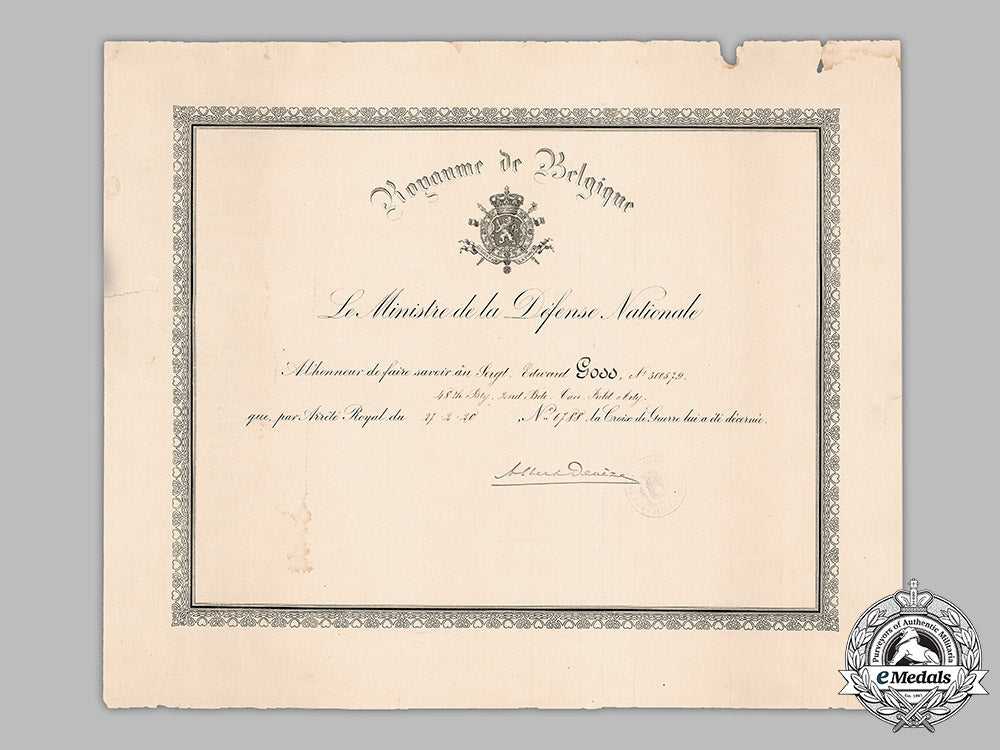 Royaume de Belgique
Le Ministre de la Défense Nationale
A l'honneur de faire savoir au Sergt. Edward Goss, No 300579.
48th Bty. 2nd Bde. Can. Field Arty.
que, par Arrêté Royal du 27-2-20 No 6788 la Croix de Guerre lui a été décernée.
Albert Devèze
Purveyors of Authentic Militaria
eMedals